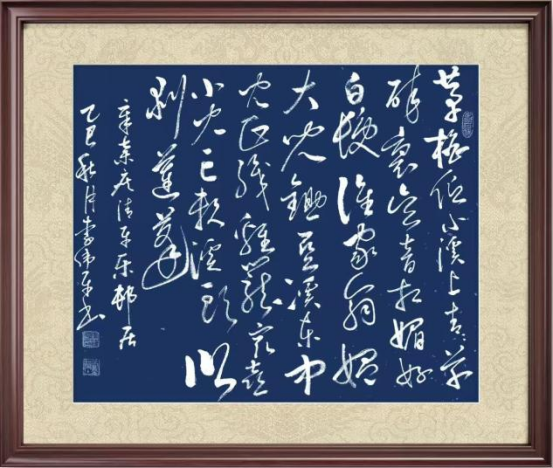 茅檐低小溪上青青草
醉里吴音相媚好
白发谁家翁媪
大儿锄豆溪东中
儿正织鸡笼最喜
小儿亡赖溪头卧
剥莲蓬
辛弃疾清平乐邨居
乙巳秋月李书